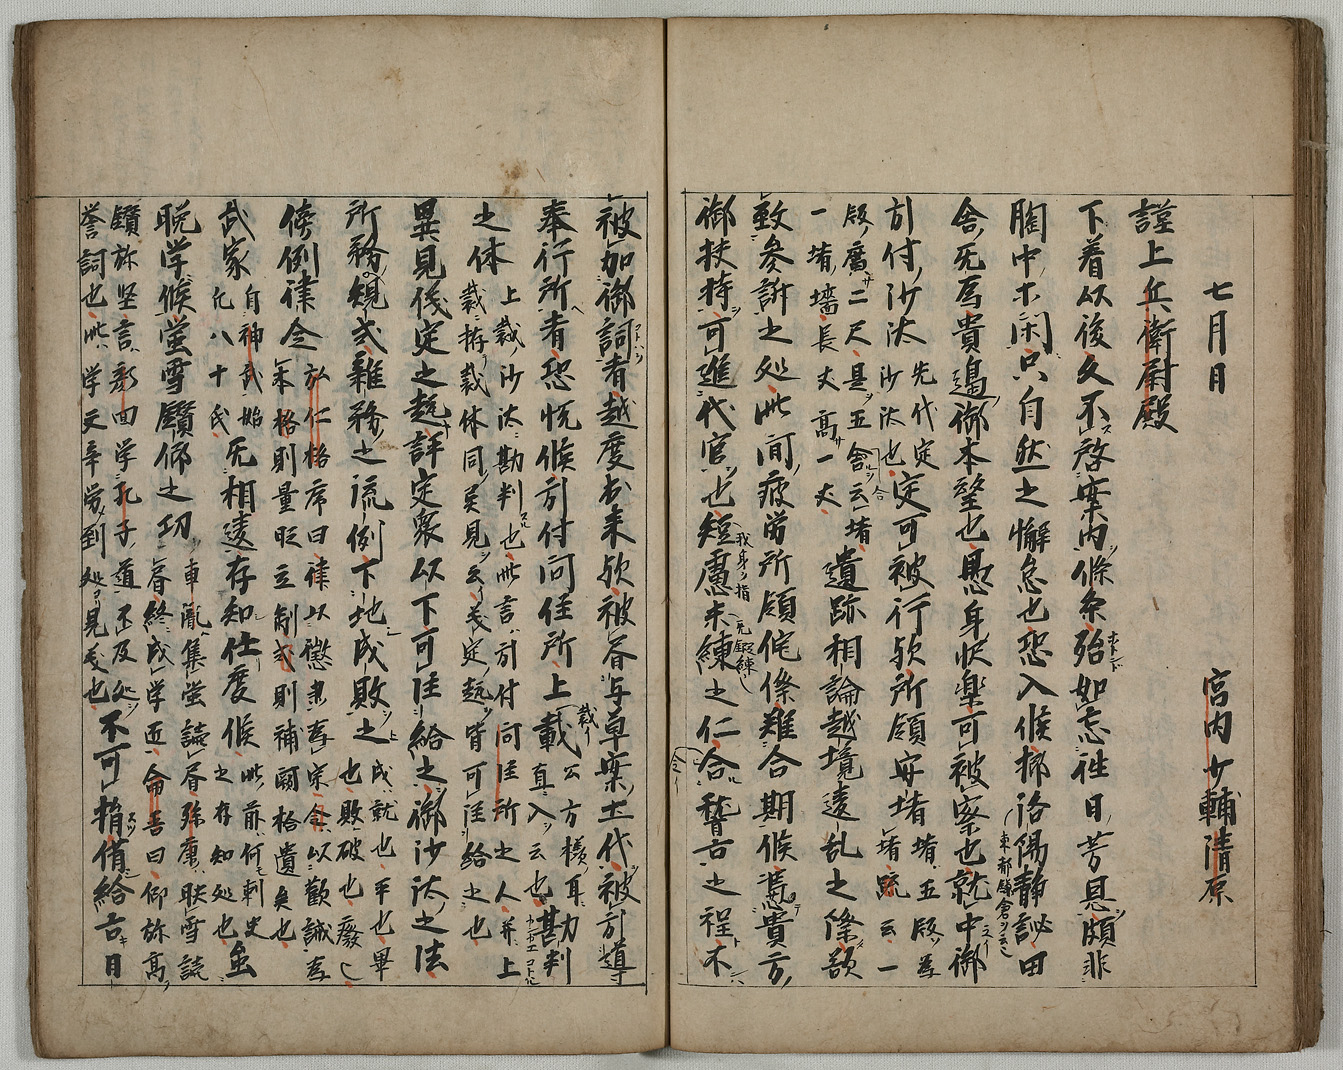 七月月 宮内少輔清原
謹上兵衛尉殿
下着以後久不啓案内候条殆如忘往日芳恩頗非
胸中ホ閑只自然之懈怠也恐入候抑洛陽静謐田
舎无為貴邊御本望也愚身快楽可被察也就中御
引付沙汰 先代定沙汰也 定可被行歟所領安堵 堵五版為堵疏云一
版廣二尺是五舎云堵
一堵墻長丈高一丈 遺跡相論越境違乱之條欲
致参訴之処此間疲労所領侘傺難合期候憑貴方
御扶持可進代官也短慮未練之仁合稽古之程不
被加御詞者越度出来歟被下与草案土代被引導
奉行所者恐悦候引付問注所上裁 公方様耳直入云也 勘判
之体 上裁沙汰勘判也此言引付問注所之人并上裁 裁許裁体同異見云議定趣皆可注給之也
異見儀定之趣評定衆以下可注給之御沙汰之法
所務規式雑務之流例下地成敗之 成就也平也畢也敗破也癈
傍例律令 弘仁格序曰律以懲粛為宗令以勧誡為本格則量時立制式則補闕格遺矣也
武家 自神武始九八十氏 无相違存知仕度候 此前何刺史之存知処也 虽
晩学候蛍雪鑽仰之功 車胤集蛍読 孫康映雪読 終成学匠 命吾曰仰弥高
鑽弥堅言 顔回学孔子道不及処
誉詞也此学文辛労到処見矣也 不可猶備給古日